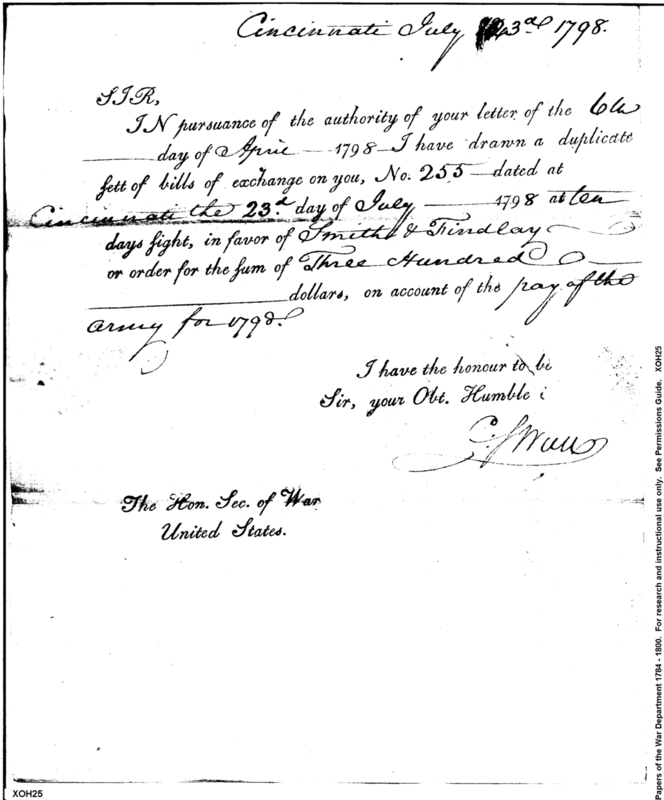 Cincinnati July 23d 1798.
SIR,
IN pursuance of the authority of your letter of the 6th
day of April 1798 I have drawn a duplicate
sett of bills of exchange on you, No. 255 dated at
Cincinnati the 23d day of July 1798 at ten
days sight, in favor of Smith & Findlay
or order for the sum of Three Hundred
dollars, on account of the pay of the
army for 1798.
I have the honour to be
Sir, your Obt. Humble
C Swan
The Hon. Sec. of War
United States.
Papers of the War Department 1784 - 1800. For research and instructional use only. See Permissions Guide. XOH25
XOH25